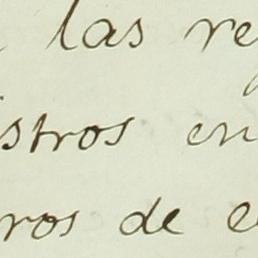 las re
istros en
ros de e